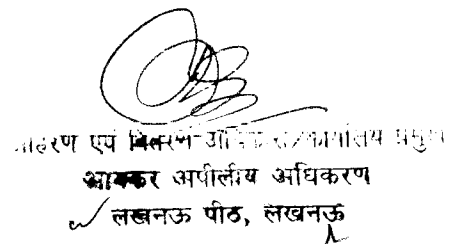 एवं वितरण अधिकारी/कार्यालय प्रमुख
आयकर अपीलीय अधिकरण
लखनऊ पीठ, लखनऊ